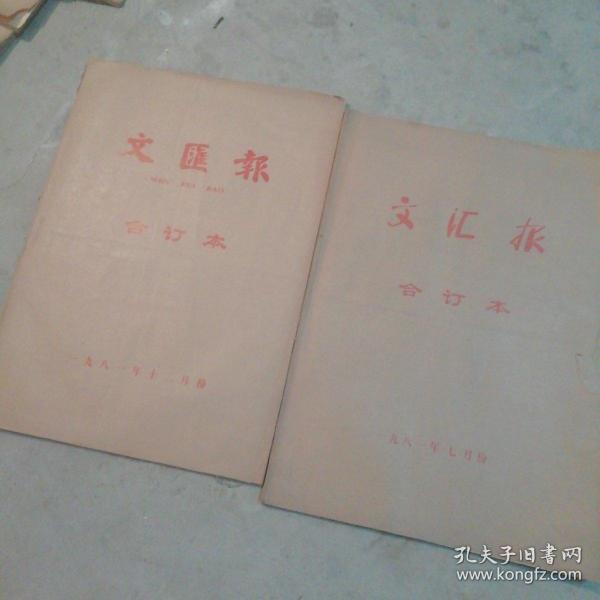 文匯報
WEN HUI BAO
合订本
一九八一年十二月份
文汇报
合订本
九八一年七月份
孔夫子旧书网
www.kongfz.com